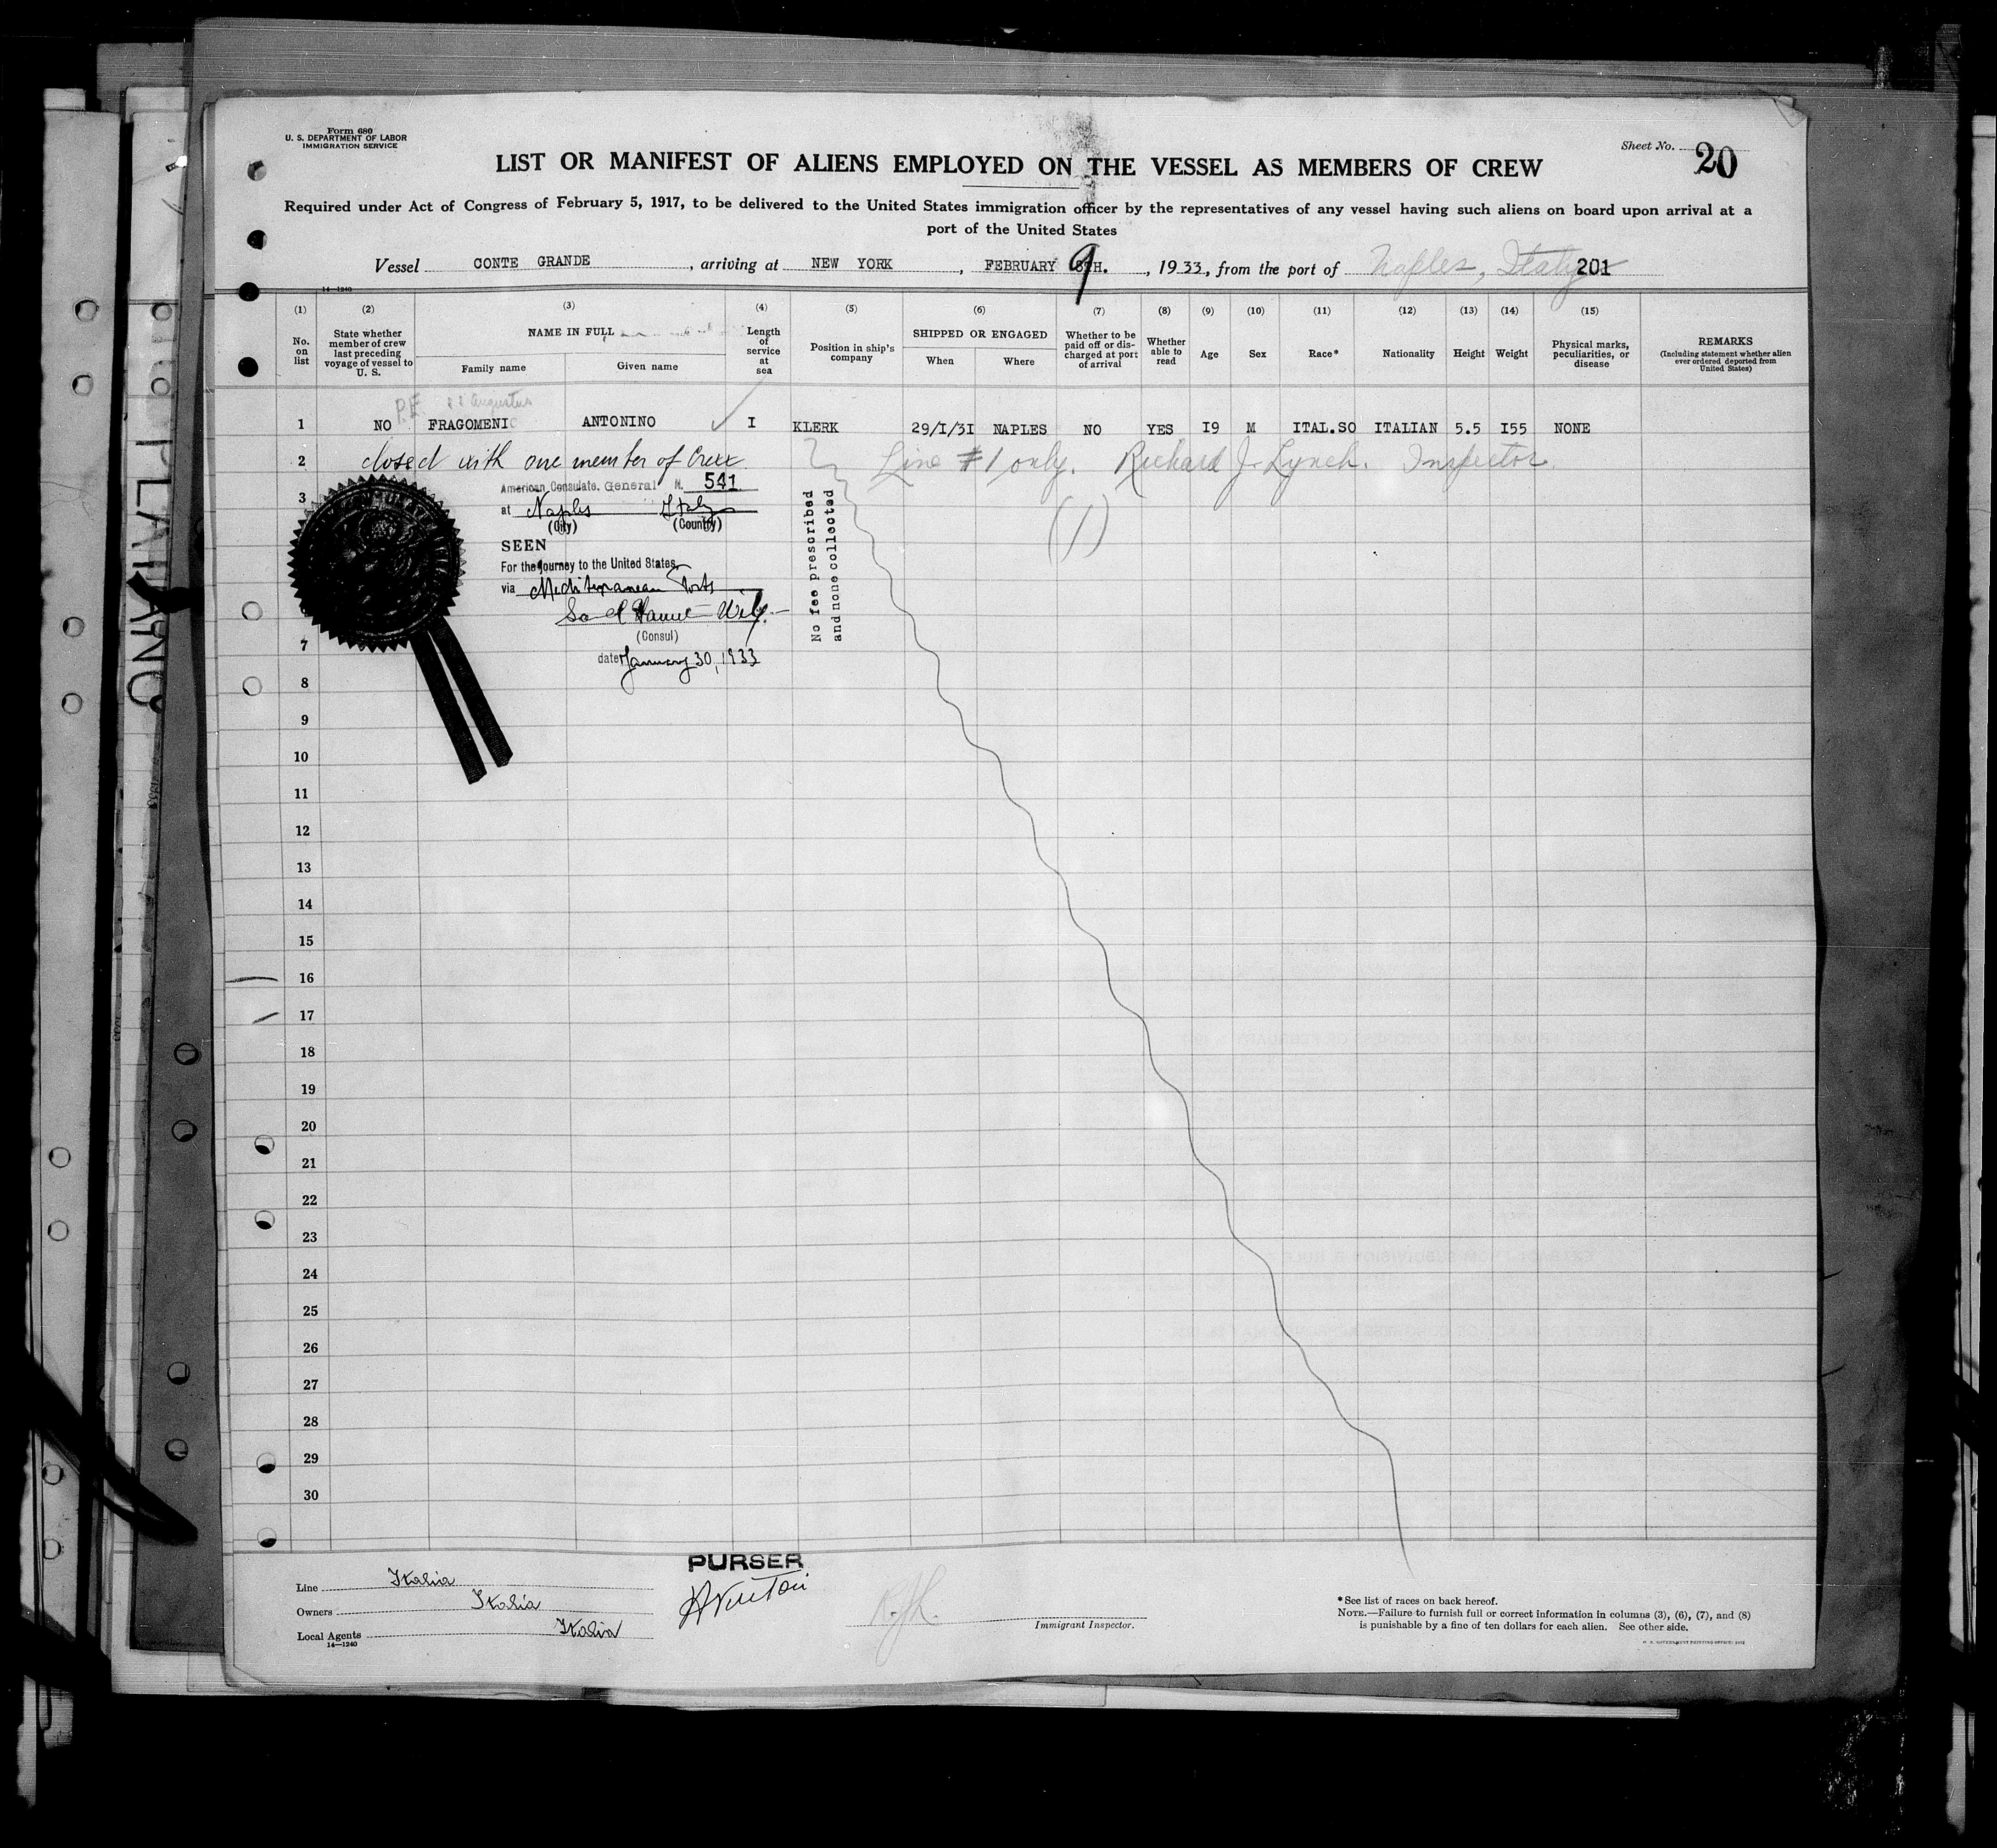 Form 680
U. S. DEPARTMENT OF LABOR
IMMIGRATION SERVICE
Sheet No. 20
LIST OR MANIFEST OF ALIENS EMPLOYED ON THE VESSEL AS MEMBERS OF CREW
Required under Act of Congress of February 5, 1917, to be delivered to the United States immigration officer by the representatives of any vessel having such aliens on board upon arrival at a
port of the United States
Vessel CONTE GRANDE, arriving at NEW YORK, FEBRUARY 9 8TH., 1933, from the port of Naples, Italy 201
14—1240
(1) (2) (3) (4) (5) (6) (7) (8) (9) (10) (11) (12) (13) (14) (15)
No. on list
State whether member of crew last preceding voyage of vessel to U. S.
NAME IN FULL
Family name
Given name
Length of service at sea
Position in ship's company
SHIPPED OR ENGAGED
When
Where
Whether to be paid off or discharged at port of arrival
Whether able to read
Age
Sex
Race*
Nationality
Height
Weight
Physical marks, peculiarities, or disease
REMARKS
(Including statement whether alien ever ordered deported from United States)
P.E. SS Augustus
1 NO FRAGOMENI ANTONINO I KLERK 29/I/3I NAPLES NO YES I9 M ITAL.SO ITALIAN 5.5 I55 NONE
2 closed with one member of Crew. Line #1 only. Richard J. Lynch. Inspector.
American Consulate. General N. 541
3
at Naples Italy
(City) (Country)
(1)
SEEN
For the journey to the United States
via Mediterranean Ports
(Consul)
date January 30, 1933
No fee prescribed
and none collected
7
8
9
10
11
12
13
14
15
16
17
18
19
20
21
22
23
24
25
26
27
28
29
30
PURSER
Line Italia
Owners Italia
Local Agents Italia
14—1240
R.J.L.
Immigrant Inspector.
*See list of races on back hereof.
NOTE.—Failure to furnish full or correct information in columns (3), (6), (7), and (8)
is punishable by a fine of ten dollars for each alien. See other side.